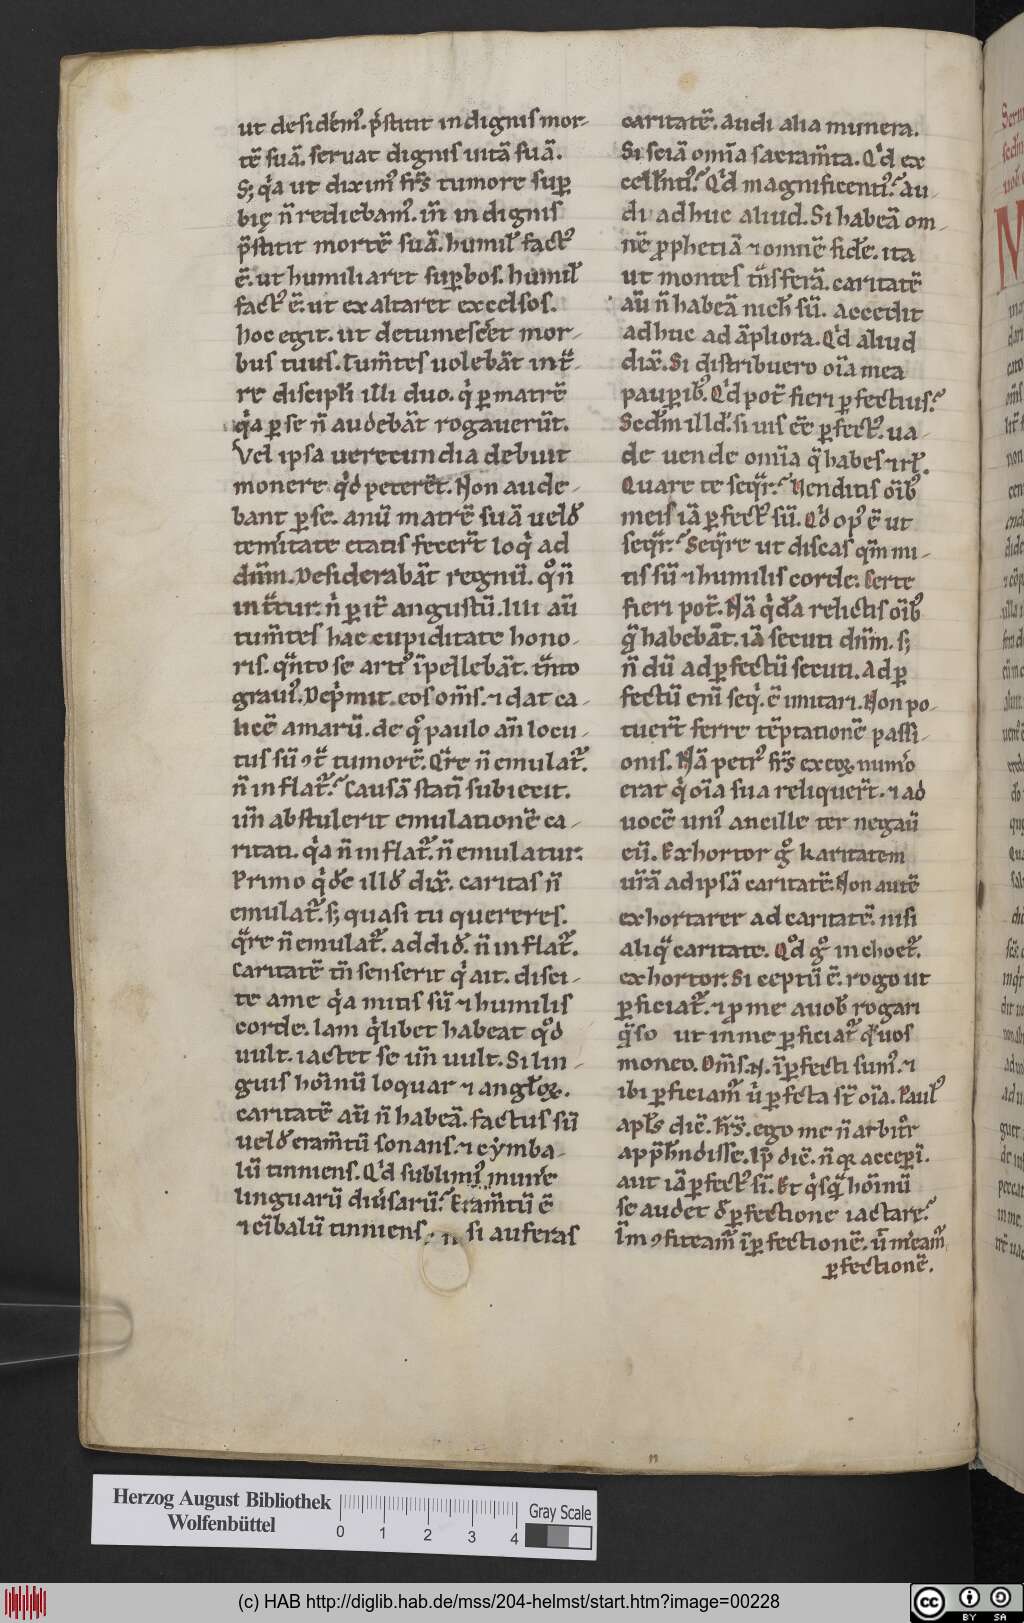 ut desidem᷒. p̄stitit indignis mor-
tē suā. seruat dignis uitā suā.
S; q̇a ut diximꝰ fr̄s tumore suꝑ
bię n̄ rediebamꝰ. in̄ indignis
p̄stitit mortē suā. humil̄ factꝰ
ē. ut humiliaret suꝑbos. humil̄
factꝰ ē. ut exaltaret excelsos.
hoc egit. ut detumesc̄et mor-
bus tuus. Tum̄tes uolebāt int̄-
re discipl̄i illi duo. q̇ ꝑ matrē
q̇a ꝑ se n̄ audebāt rogauerūt.
Vel ipsa uerecundia debuit
monere q̇d peterēt. Non aude-
bant ꝑ se. anū matrē suā uelđ
temitate etatis fecer̄t loq̇ ad
dn̄m. Desiderabāt regnū. qͦ n̄
int̄tur: n̄ ꝑ it̄ angustū. Illi aū
tum̄tes hac cupiditate hono-
ris. qn̄to se artiꝰ īpellebāt. tn̄to
grauiꝰ. Dep̄mit. eos om̄s. ⁊ dat ca-
licē amarū. de qͦ paulo an̄ locu-
tus sū ꝯt̄ tumorē. Qr̄e n̄ emulat᷒.
n̄ inflat᷒? Causā stati᷒ subiecit.
un̄ abstulerit emulationē ca-
ritati. q̇a n̄ inflat᷒. n̄ emulatur:
Primo q̇đe illđ dix̄. caritas n̄
emulat᷒. s; quasi tu quereres.
qr̄e n̄ emulat᷒. addiđ. n̄ inflat᷒.
Caritatē tn̄ senserit q̇ ait. disci-
te a me q̇a mitis sū ⁊ humilis
corde. Iam q̇libet habeat qͦd
uult. iactet se un̄ uult. Si lin-
guis hoi᷒nū loquar ⁊ angl̄oꝝ.
caritatē aū n̄ habeā. factus sū
uelđ eram̄tū sonans. ⁊ cẏmba-
lū tinniens. Q̇d sublimiꝰ mun̄e
linguarū diu᷒sarū? Eram̄tū ē
⁊ cībalū tinniens. si auferas
caritatē. Audi alia munera.
Si sciā om̄ia sacram̄ta. Q̇d ex
cell̄ntiꝰ? Q̇d magnificentiꝰ? Au-
di adhuc aliud. Si habeā om-
nē ꝓphetiā ⁊ omnē fiđe. ita
ut montes tn̄sferā. caritatē
aū n̄ habeā nich̄ sū. accedit
adhuc ad āpliora. Q̇d aliud
dix̄. Si distribuero oi᷒a mea
pauꝑibꝰ. Q̇d pot̄ fieri ꝑfectius?
Sedm̄ illđ. si uis ēē ꝑfectꝰ. ua-
de uende omi᷒a q̄ habes ⁊ rl̄.
Quare te seqr̄? Uenditis oi᷒bꝰ
meis iā ꝑfectꝰ sū. Q̇d opꝰ ē ut
seqr̄? Seqr̄e ut discas qm̄ mi-
tis sū ⁊ humilis corde: Certe
fieri pot̄. Nā q̇đa relictis oi᷒bꝰ
q̄ habebāt. iā secuti dn̄m. s;
n̄ dū ad ꝑfectū secuti. Ad ꝑ
fectū eni᷒ seq̇. ē imitari. Non po-
tuer̄t ferre tēptationē passi-
onis. Nā petrꝰ fr̄s ex eoꝝ num̄o
erat q̇ oi᷒a sua reliquer̄t. ⁊ ad
uocē uniꝰ ancille ter negaū
eū. Exhortor gͦ karitatem
ur̄ā ad ipsā caritatē. Non autē
exhortarer ad caritatē. nisi
aliq̄ caritate. Qͦd gͦ inchoet᷒.
exhortor. Si ceptū ē. rogo ut
ꝑficiat᷒. ⁊ ꝓ me a uob̄ rogari
q̄so ut in me ꝑficiat᷒ q̄ uos
moneo. Om̄s .n. īꝑfecti sumꝰ. ⁊
ibi ꝑficiam᷒ u̇ ꝑfecta st̄ oi᷒a. Paul᷒
apl̄s dic̄. Fr̄s. ego me n̄ arbitr̄
app̄h̄ndisse. Ip̄ dic̄. n̄ qꝛ acceꝑi᷒.
aut iā ꝑfectꝰ si᷒. Et q̇sq̄ hoi᷒nū
se audet đ ꝑfectione iactare?
I᷒m ꝯfiteam᷒ īꝑfectionē. u̇ m̄eam᷒
ꝑfectionē.
Herzog August Bibliothek
Wolfenbüttel
0 1 2 3 4
Gray Scale
(c) HAB http://diglib.hab.de/mss/204-helmst/start.htm?image=00228
cc BY SA